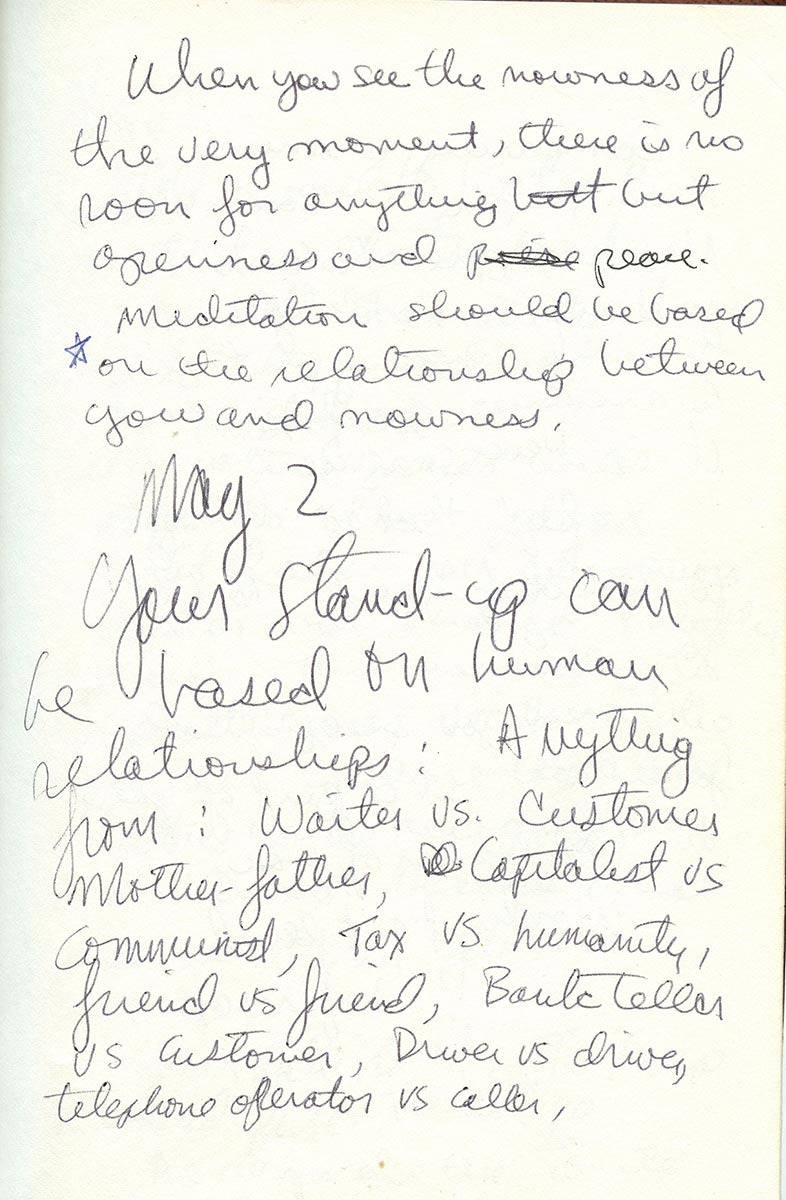 When you see the nowness of
the very moment, there is no
room for anything butt but
openness and peace.
Meditation should be based
☆ on the relationship between
you and nowness.
May 2
Your stand-up can
be based on human
relationships: Anything
from: Waiter vs. Customer
Mother-father, Capitalist vs
Communist, Tax vs humanity,
friend vs friend, Bank teller
vs Customer, Driver vs driver,
telephone operator vs caller,